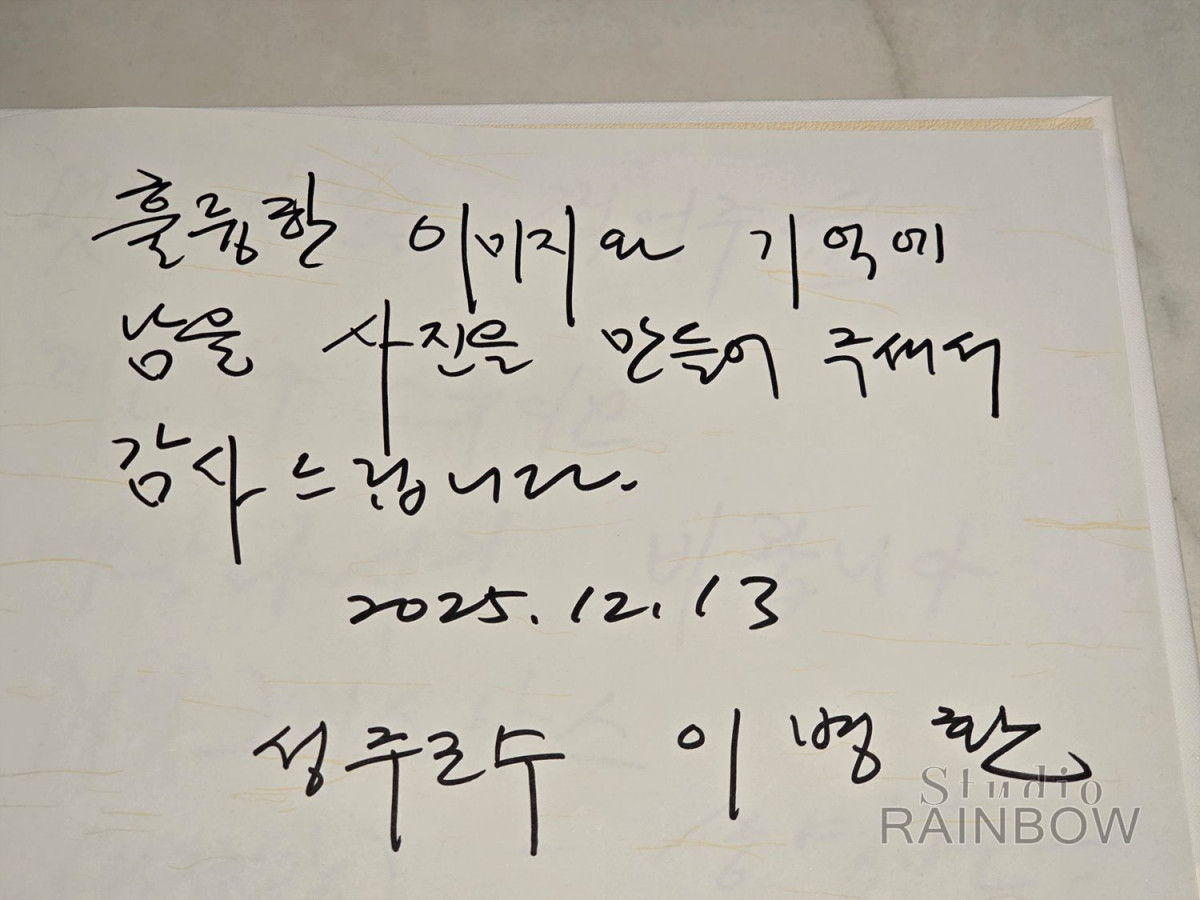 훌륭한 이미지와 기억에
남을 사진을 만들어 주셔서
감사드립니다.
2025. 12. 13
성주군수 이병환
Studio
RAINBOW